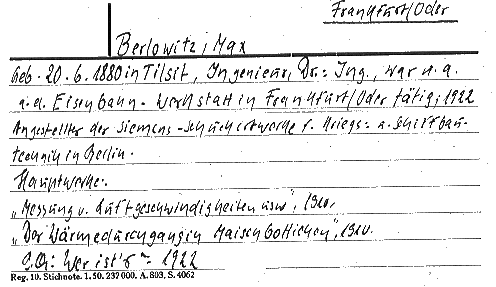 Frankfurt/Oder
Berlowitz, Max
Geb. 20.6.1880 in Tilsit, Ingenieur, Dr.-Ing., war u.a.
i.d. Eisenbahn-Werkstatt in Frankfurt/Oder tätig, 1922
Angestellter der Siemens-Schuckertwerke f. Kriegs- u. Schiffbau-
technik in Berlin.
Hauptwerke:
„Messung v. Luftgeschwindigkeiten usw", 1910.
„Der Wärmedurchgang in Maischbottichen", 1910.
Wer ist's - 1922
Reg. 10. Stichnote. 1. 50. 237 000. A. 803, S. 4062